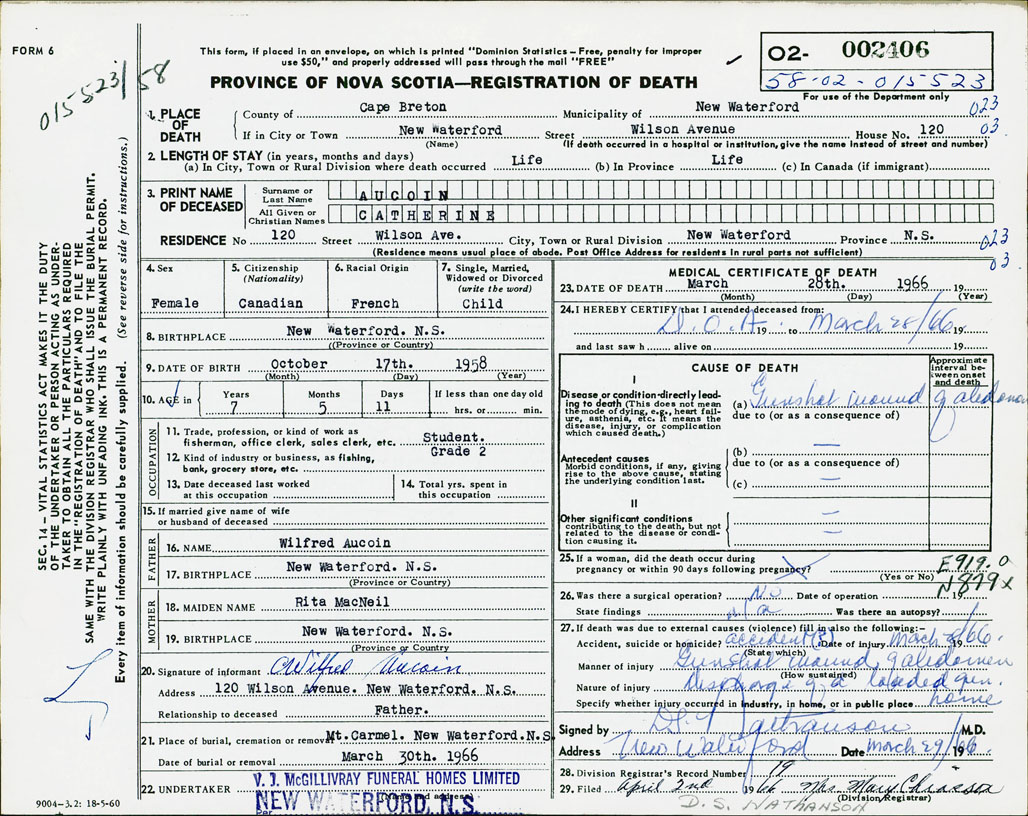 FORM 6
015523/58
This form, if placed in an envelope, on which is printed "Dominion Statistics – Free, penalty for improper
use $50," and properly addressed will pass through the mail "FREE"
PROVINCE OF NOVA SCOTIA—REGISTRATION OF DEATH
02- 002406
58-02-015523
For use of the Department only
1. PLACE OF DEATH
County of Cape Breton Municipality of New Waterford 023
If in City or Town New Waterford Street Wilson Avenue House No. 120 03
(Name) (If death occurred in a hospital or institution, give the name instead of street and number)
2. LENGTH OF STAY (in years, months and days)
(a) In City, Town or Rural Division where death occurred Life (b) In Province Life (c) In Canada (if immigrant)
3. PRINT NAME OF DECEASED
Surname or Last Name AUCOIN
All Given or Christian Names CATHERINE
RESIDENCE No 120 Street Wilson Ave. City, Town or Rural Division New Waterford Province N.S. 023
(Residence means usual place of abode. Post Office Address for residents in rural parts not sufficient) 03
4. Sex
Female
5. Citizenship (Nationality)
Canadian
6. Racial Origin
French
7. Single, Married, Widowed or Divorced (write the word)
Child
8. BIRTHPLACE New Waterford. N.S.
((Province or Country)
9. DATE OF BIRTH October 17th. 1958
(Month) (Day) (Year)
10. AGE in Years 7 Months 5 Days 11 If less than one day old hrs. or min.
OCCUPATION
11. Trade, profession, or kind of work as
fisherman, office clerk, sales clerk, etc. Student.
12. Kind of industry or business, as fishing, Grade 2
bank, grocery store, etc.
13. Date deceased last worked
at this occupation
14. Total yrs. spent in
this occupation
15. If married give name of wife
or husband of deceased
FATHER
16. NAME Wilfred Aucoin
17. BIRTHPLACE New Waterford. N.S.
(Province or Country)
MOTHER
18. MAIDEN NAME Rita MacNeil
19. BIRTHPLACE New Waterford. N.S.
(Province or Country)
20. Signature of informant Wilfred Aucoin
Address 120 Wilson Avenue. New Waterford. N.S.
Relationship to deceased Father.
21. Place of burial, cremation or removal Mt. Carmel. New Waterford.N.S.
Date of burial or removal March 30th. 1966
22. UNDERTAKER V. J. McGILLIVRAY FUNERAL HOMES LIMITED
NEW WATERFORD, N.S.
Per
MEDICAL CERTIFICATE OF DEATH
23. DATE OF DEATH March 28th. 1966 19
(Month) (Day) (Year)
24. I HEREBY CERTIFY that I attended deceased from:
D.O.A. 19 to March 28/66 19
and last saw h alive on 19
CAUSE OF DEATH
Approximate interval between onset and death
I
Disease or condition directly leading to death (This does not mean
the mode of dying, e.g., heart failure, asthenia, etc. It means the
disease, injury, or complication
which caused death.)
(a) Gunshot wound of abdomen
due to (or as a consequence of)
Antecedent causes
Morbid conditions, if any, giving
rise to the above cause, stating
the underlying condition last.
(b)
due to (or as a consequence of)
(c)
II
Other significant conditions
contributing to the death, but not
related to the disease or condition causing it.
25. If a woman, did the death occur during
pregnancy or within 90 days following pregnancy?
(Yes or No)
E919.0
N879x
26. Was there a surgical operation? No Date of operation 19
State findings n/a Was there an autopsy?
27. If death was due to external causes (violence) fill in also the following:—
Accident, suicide or homicide? accident (?) Date of injury March 28/66. 19
(State which)
Manner of injury Gunshot wound of abdomen
(How sustained)
Nature of injury Discharge of a loaded gun.
Specify whether injury occurred in industry, in home, or in public place home
Signed by Nathanson M.D.
Address New Waterford Date March 29/66. 196
28. Division Registrar's Record Number 19
29. Filed April 2nd 1966 Mrs. Mary Chiasson
(Division Registrar)
D. S. NATHANSON
SEC. 14 – VITAL STATISTICS ACT MAKES IT THE DUTY
OF THE UNDERTAKER OR PERSON ACTING AS UNDER-
TAKER TO OBTAIN ALL THE PARTICULARS REQUIRED
IN THE "REGISTRATION OF DEATH" AND TO FILE THE
SAME WITH THE DIVISION REGISTRAR WHO SHALL ISSUE THE BURIAL PERMIT.
WRITE PLAINLY WITH UNFADING INK. THIS IS A PERMANENT RECORD.
Every item of information should be carefully supplied. (See reverse side for instructions.)
9004–3.2: 18-5-60